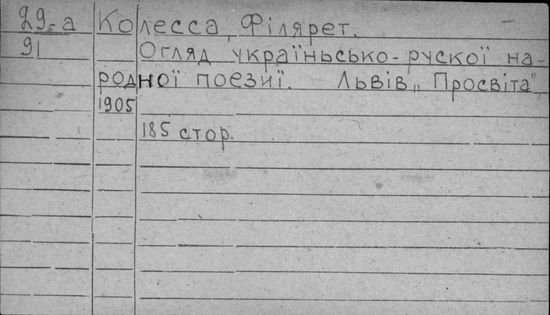 29-а Колесса, Філярет.
91 Огляд україньсько-рускої на-
родної поезиї. Львів „Просвіта"
1905
185 стор.